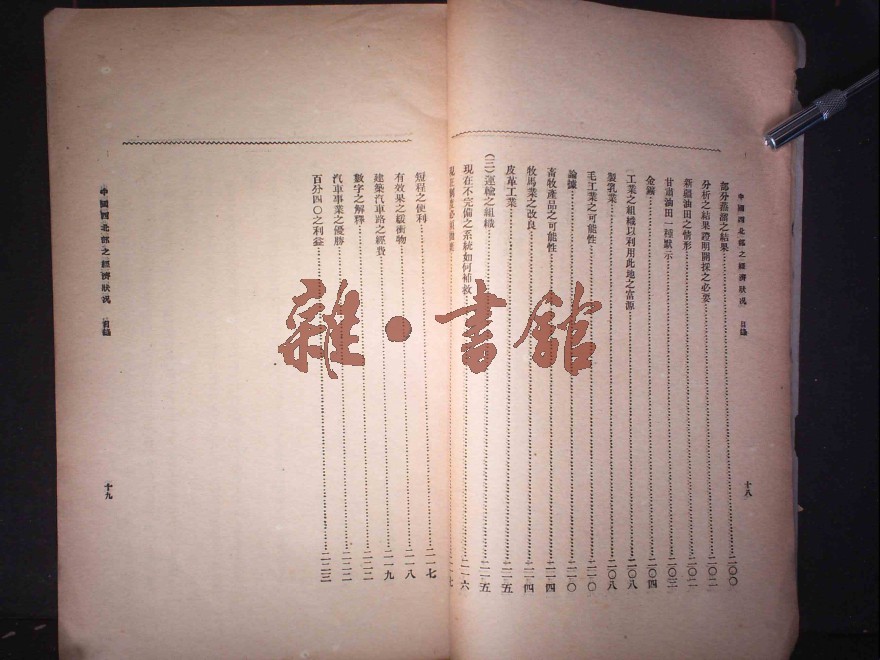 中國西北部之經濟狀況 目錄
十八
部分蒸溜之結果 二〇〇
分析之結果證明開採之必要 二〇二
新疆油田之情形 二〇二
甘肅油田一種默示 二〇三
金鑛 二〇四
工業之組織以利用此地之富源 二〇八
製乳業 二〇八
毛工業之可能性 二一〇
論據 二一〇
畜牧產品之可能性 二一四
牧馬業之改良 二一四
皮革工業 二一五
(三)運輸之組織 二一五
現在不完備之系統如何補救 二一六
短程之便利 二一七
有效果之緩衝物 二一八
建築汽車路之經費 二一九
數字之解釋 二二二
汽車事業之優勝 二二二
百分四〇之利益 二二三
中國西北部之經濟狀況 目錄
十九
雜·書館